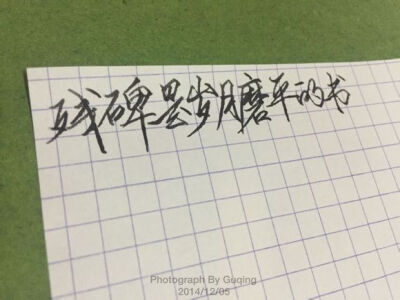 残碑是岁月磨平的书
Photograph By Guqing
2014/12/05